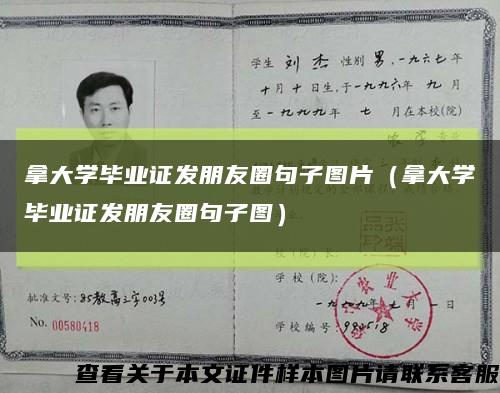 学生 刘杰 性别 男，一九六七年
十月十日生，于一九九六年 九月
至一九九九年 七月在本校(院)
农学 专业
拿大学毕业证发朋友圈句子图片（拿大学
毕业证发朋友圈句子图）
校（院）长：
学校（院）：
一九九九年七月一日
批准文号：85教高三字003号
No. 00580418
学校编号：990518
查看关于本文证件样本图片请联系客服